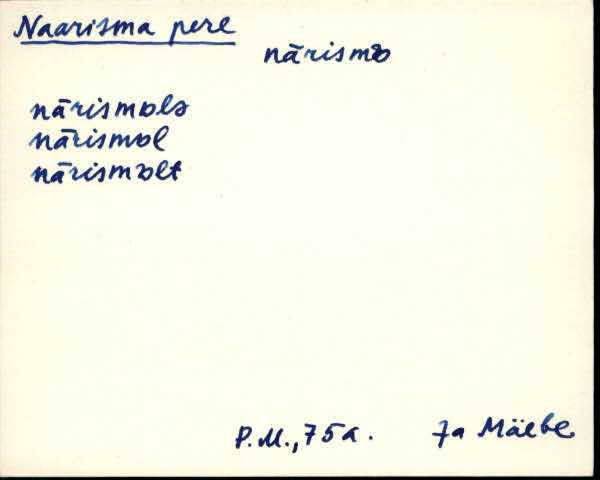 Naarisma pere
nārismɒ
nārismɒlə
nārismɒl
nārismɒlt
P.M., 75a. Ja Mäebe